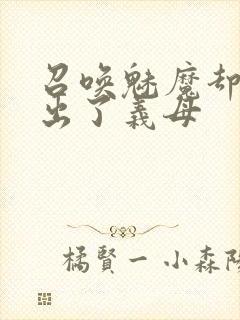 召唤魅魔却
出了義母
橘賢一 小森陽